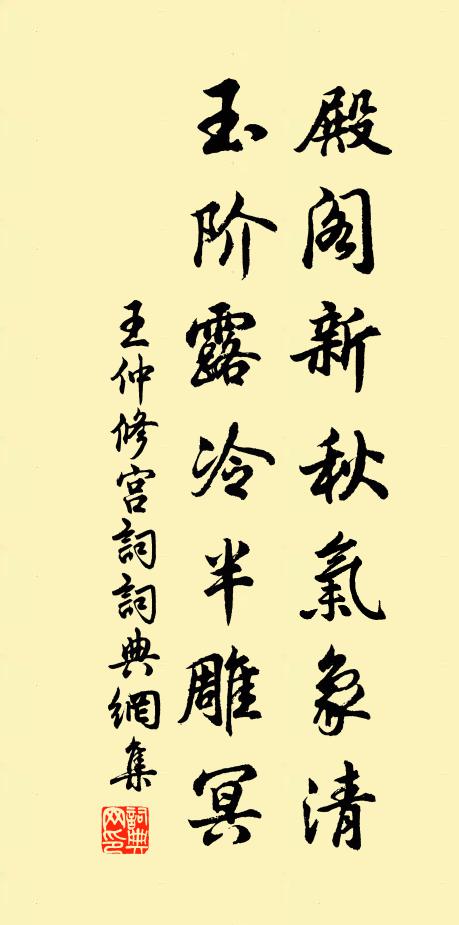 殿阁新秋氣象清
玉阶露冷半雕冥
王仲修宫詞詞典網集
詞典
网印